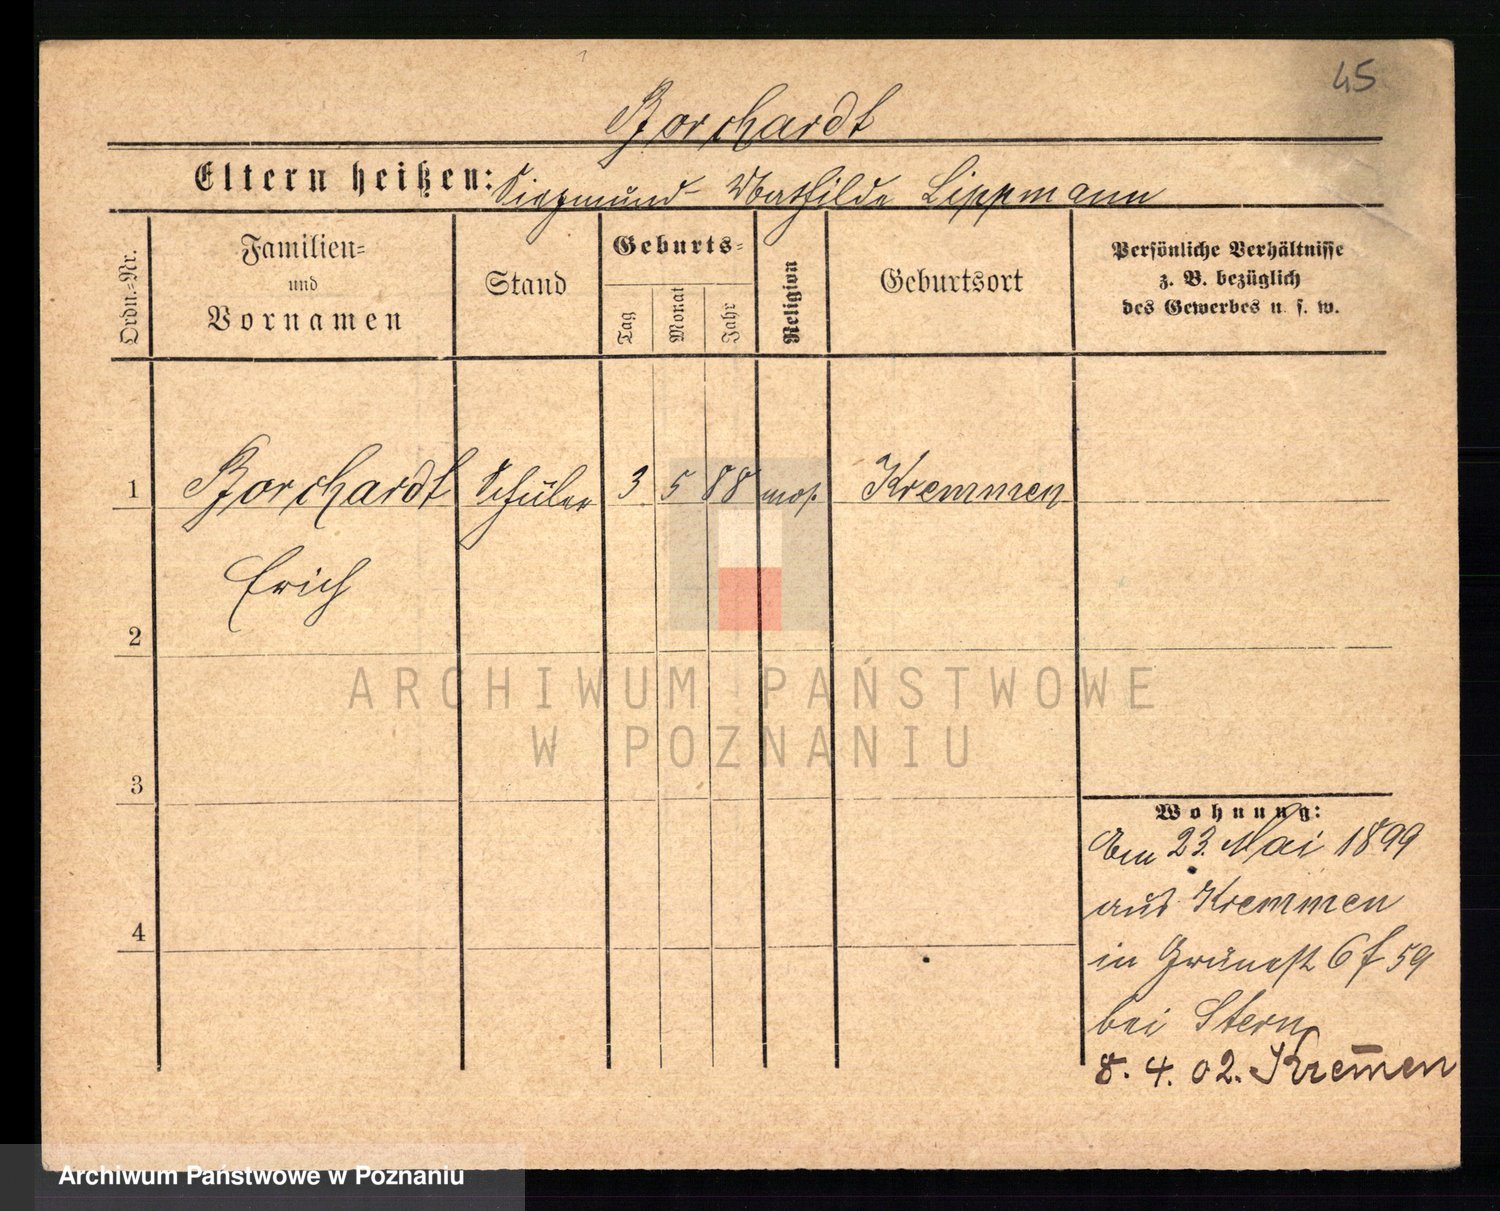 45
Borchardt
Eltern heißen: Siegmund - Mathilde Lippmann
Ordn.-Nr.
Familien-
und
Vornamen
Stand
Geburts-
Tag
Monat
Jahr
Religion
Geburtsort
Persönliche Verhältnisse
z. B. bezüglich
des Gewerbes u. s. w.
1 Borchardt Schüler 3 5 88 mos. Kremmen
Erich
2
ARCHIWUM PAŃSTWOWE
W POZNANIU
3
Wohnung:
Am 23. Mai 1899
aus Kremmen
in Grünestr 6 f 59
4
bei Stern
8. 4. 02. Krem̄en
Archiwum Państwowe w Poznaniu